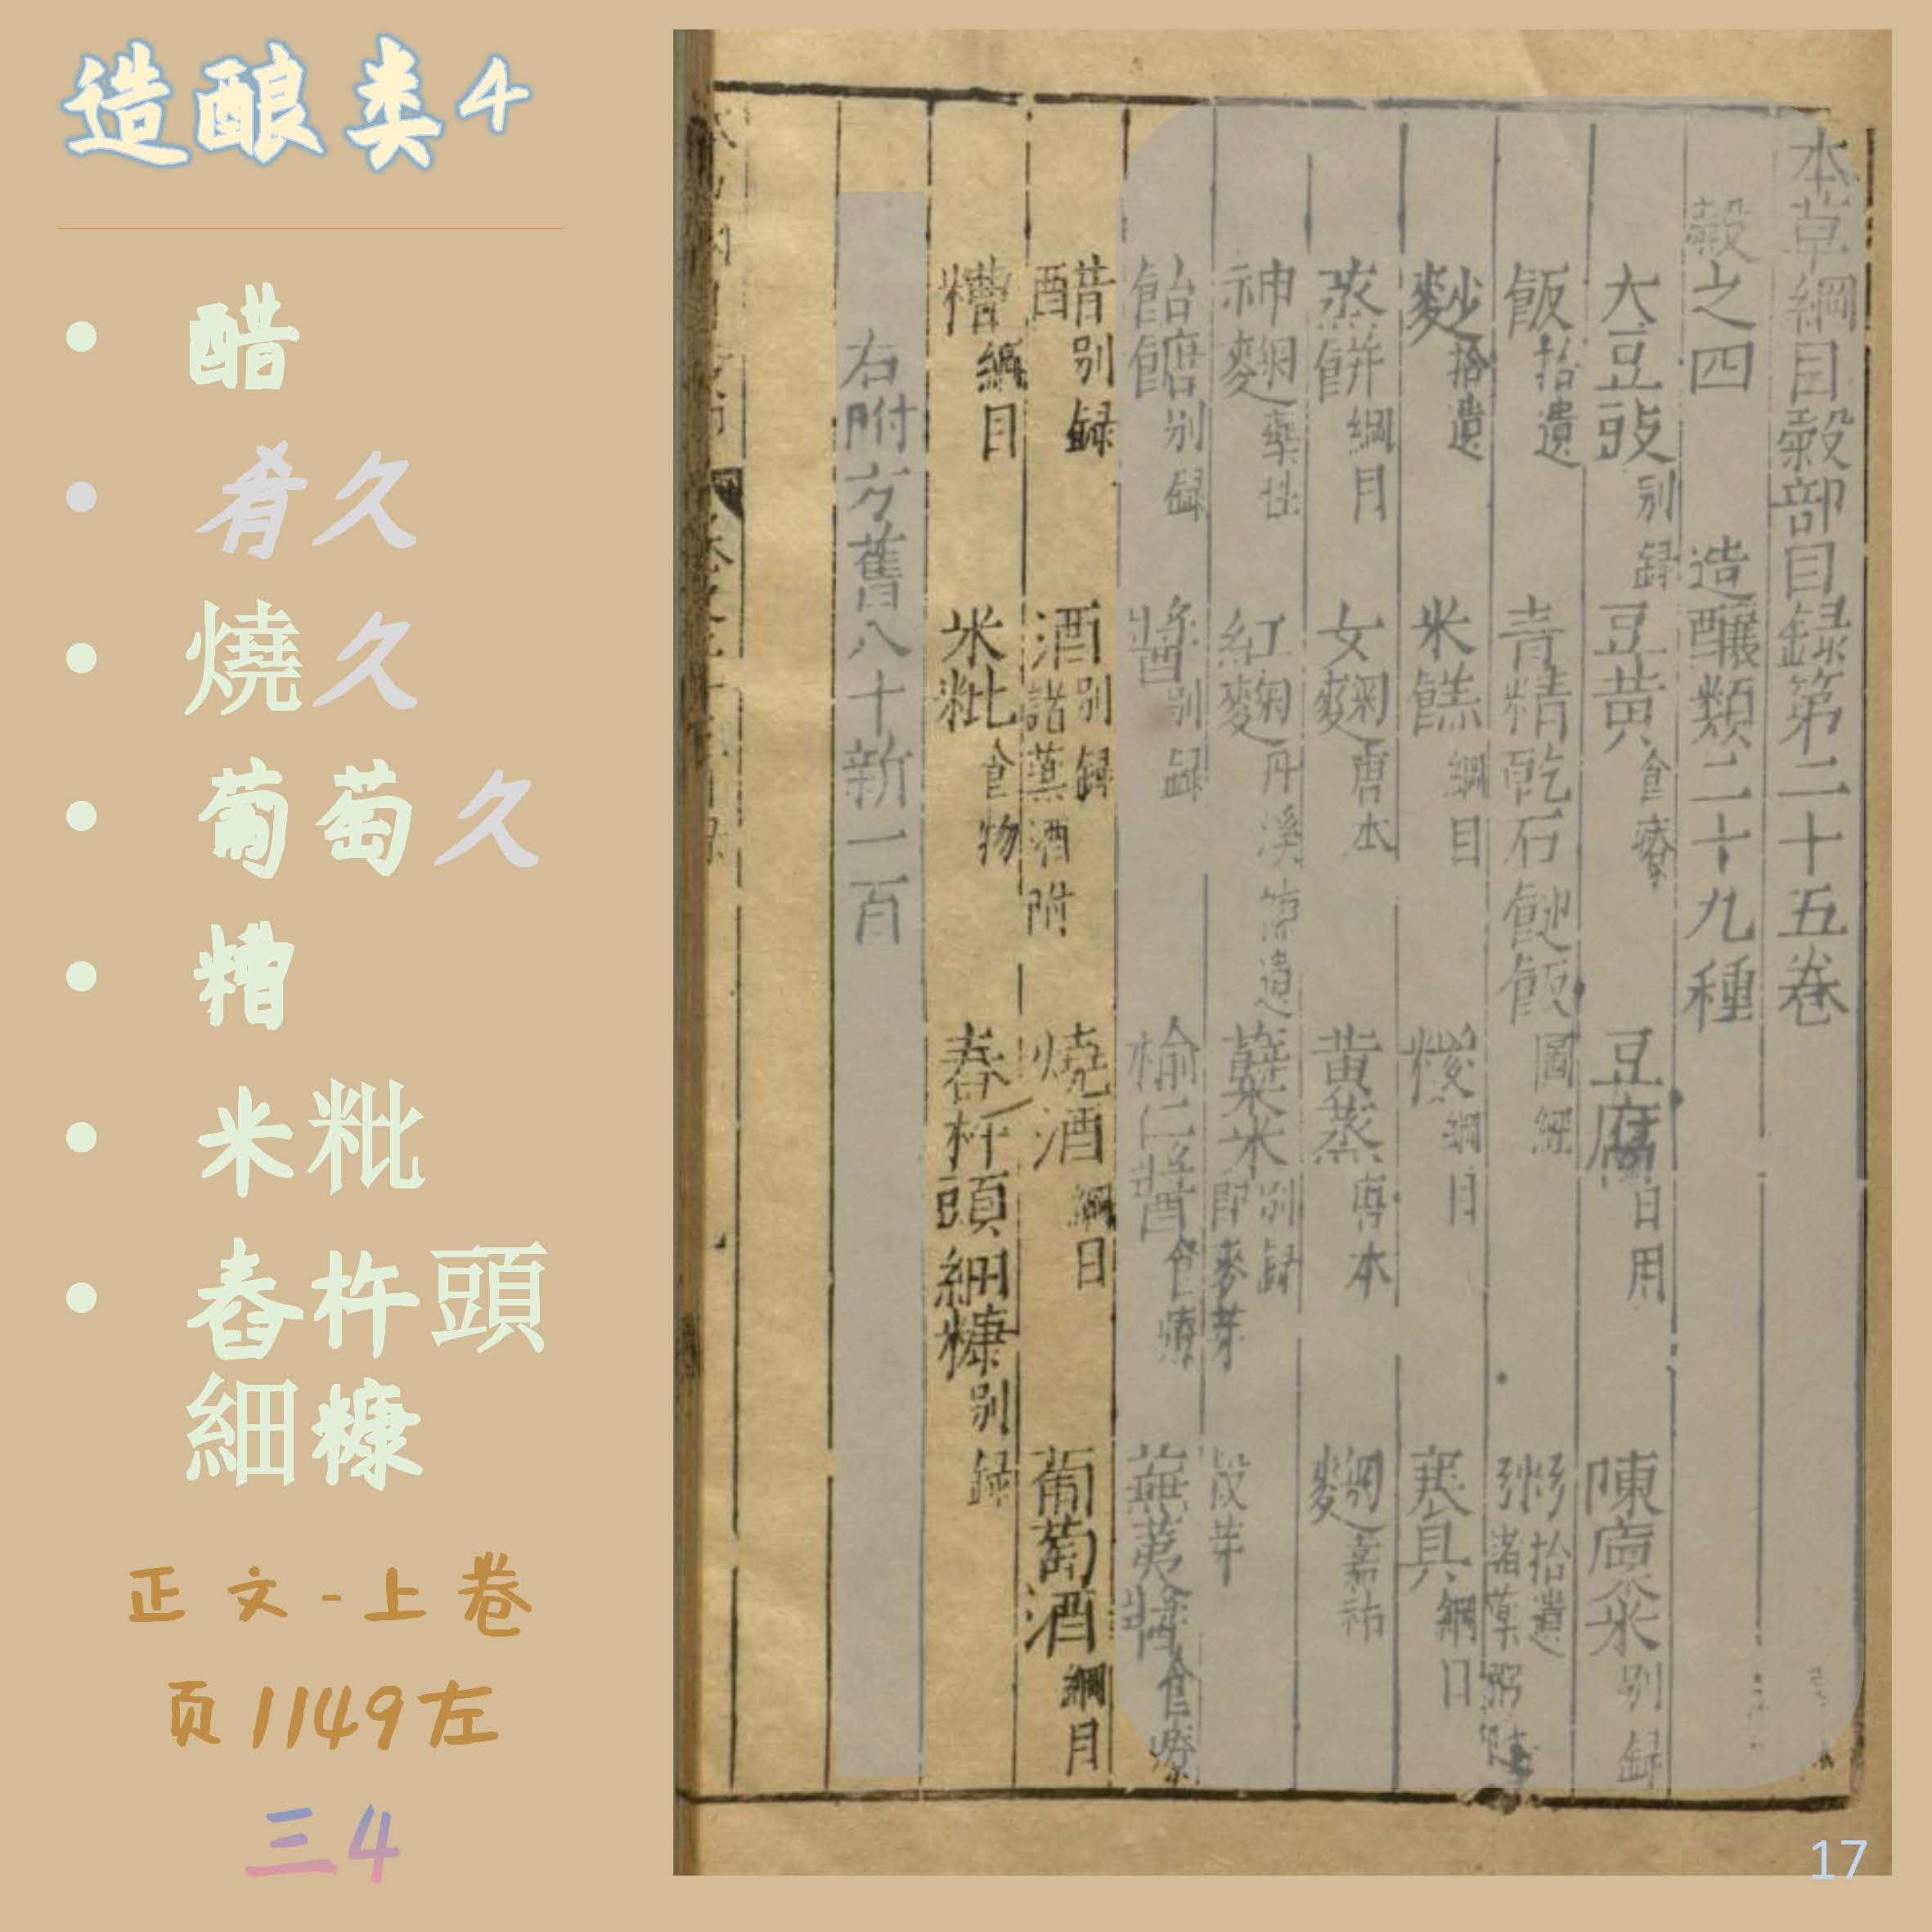 造酿类4
• 醋
• 肴久
• 燒久
• 葡萄久
• 糟
• 米粃
• 舂杵頭
細糠
正文-上卷
页1149左
三4
本草綱目穀部目錄第二十五卷
穀之四 造釀類二十九種
大豆豉别録 豆黄食療 豆腐日用 陳廩米别録
飯拾遺 青精乾石䭀飯圖經 粥拾遺諸藥粥
麨拾遺 米餻綱目 糉綱目 寒具綱目
蒸餅綱目 女麴唐本 黄蒸唐本 麴嘉祐
神麴藥性 紅麴丹溪補遺 糵米别録即麥芽穀芽
飴餹别録 醬别録 榆仁醬食療 蕪荑醬食療
醋别録 酒别録諸藥酒附 燒酒綱目 葡萄酒綱目
糟綱目 米粃食物 舂杵頭細糠别録
右附方舊八十新一百
17